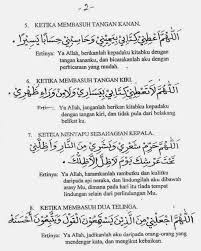 - 2 -
5. KETIKA MEMBASUH TANGAN KANAN.
اَللّٰهُمَّ اَعْطِنِيْ كِتَابِيْ بِيَمِيْنِيْ وَحَاسِبْنِيْ حِسَابًا يَسِيْرًا
Ertinya: Ya Allah, berikanlah kepadaku kitabku dengan
tangan kananku, dan hisabkanlah aku dengan
perhitungan yang mudah.
6. KETIKA MEMBASUH TANGAN KIRI.
Ertinya: Ya Allah, janganlah berikan kitabku kepadaku
dengan tangan kiri, dan tidak pula dari belakang
belikat ku.
7. KETIKA MENYAPU SEBAHAGIAN KEPALA.
Ertinya: Ya Allah, haramkanlah rambutku dan kulitku
daripada api neraka, dan lindungilah aku dibawah
arasy Mu, dimana pada hari itu tiada tempat
lindungan selain dari perlindungan Mu.
8. KETIKA MEMBASUH DUA TELINGA.
اَللّٰهُمَّ اجْعَلْنِيْ مِنَ الَّذِيْنَ يَسْتَمِعُوْنَ الْقَوْلَ وَيَتَّبِعُوْنَ اَحْسَنَهُ
Ertinya: Ya Allah, jadikanlah aku daripada orang-orang yang
mendengar kata, dan mengikut kebaikan.